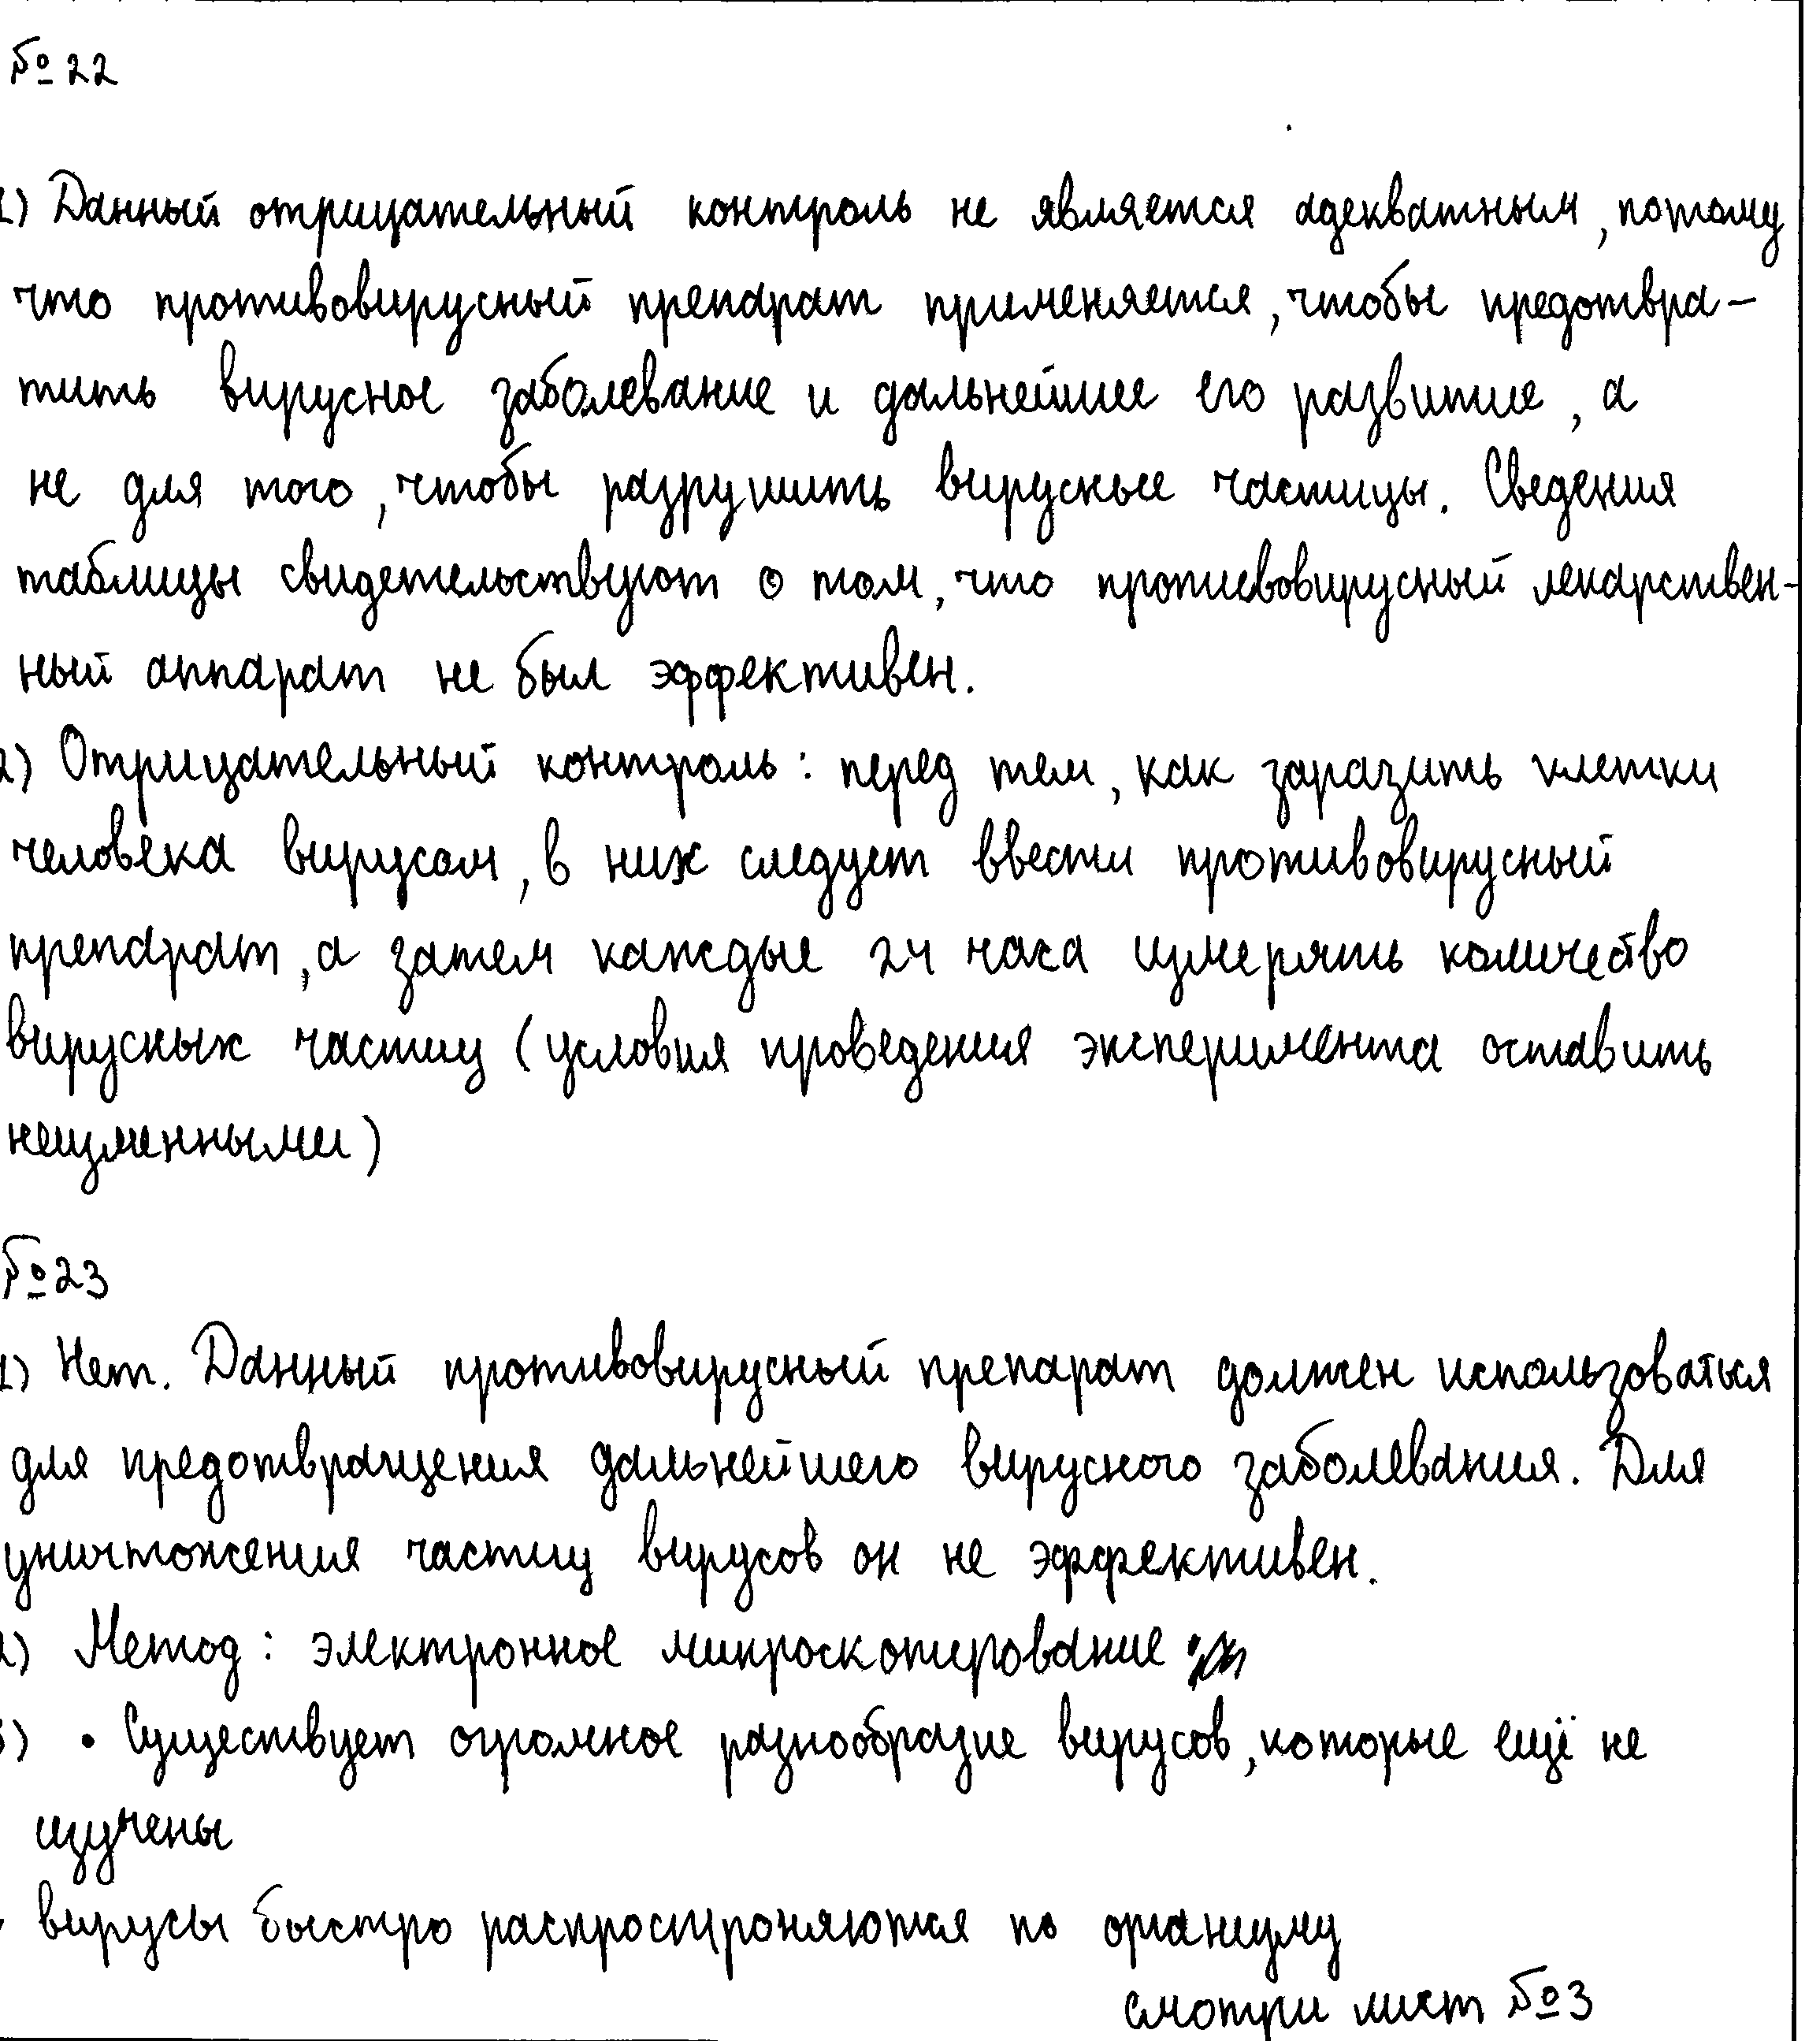 №22
1) Данный отрицательный контроль не является адекватным, потому
что противовирусный препарат применяется, чтобы предотвра-
тить вирусное заболевание и дальнейшее его развитие, а
не для того, чтобы разрушить вирусные частицы. Сведения
таблицы свидетельствуют о том, что противовирусный лекарствен-
ный аппарат не был эффективен.
2) Отрицательный контроль: перед тем, как заразить клетки
человека вирусом, в них следует ввести противовирусный
препарат, а затем каждые 24 часа измерять количество
вирусных частиц (условия проведения эксперимента оставить
неизменными)
№23
1) Нет. Данный противовирусный препарат должен использоваться
для предотвращения дальнейшего вирусного заболевания. Для
уничтожения частиц вирусов он не эффективен.
2) Метод: электронное микроскопирование
3) • Существует огромное разнообразие вирусов, которые ещё не
изучены
• вирусы быстро распространяются по организму
смотри лист №3